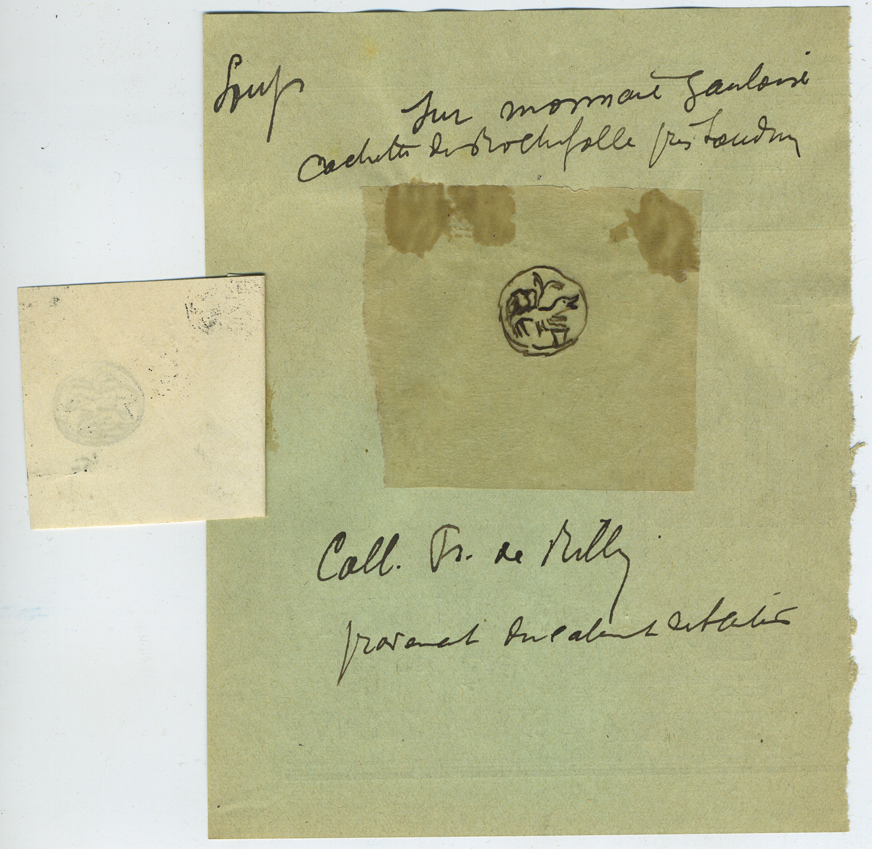 Sur monnaie gauloise
Cachette de Rochefolle près Loudun
Coll. Fr. de Rilly
provenant du cabinet